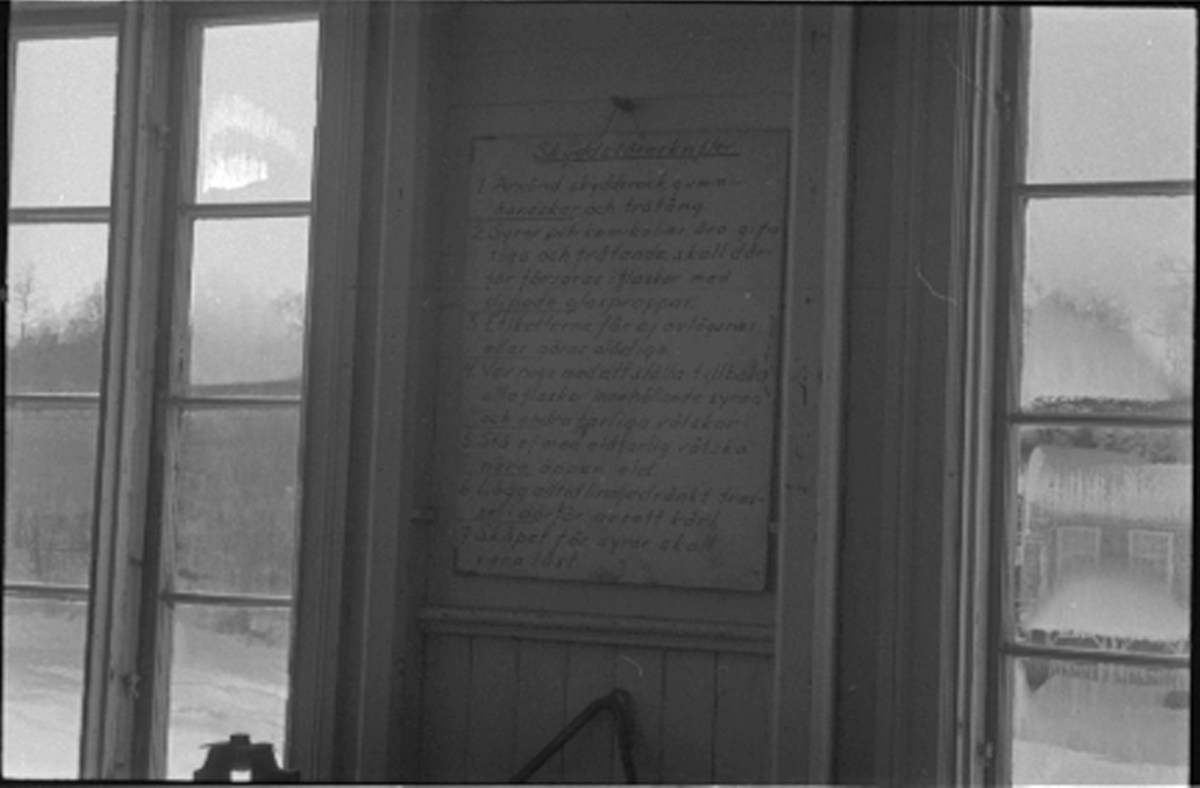 Skyddsföreskrifter.
1. Använd skyddsrock, gummi-
handskar och tråtång
2. Syror och kemikalier äro gifti-
tiga och frätande, skall där-
för förvaras i flaskor med
slipade glasproppar.
3. Etiketterna får ej avlägsnas
eller göras otydliga.
4. Var noga med att ställa tillbaka
alla flaskor innehållande syror
och andra farliga vätskor
5. Stå ej med eldfarlig vätska
nära öppen eld
6. Lägg alltid linoljedränkt tras-
sel i därför avsett kärl
7. Skåpet för syror skall
vara låst